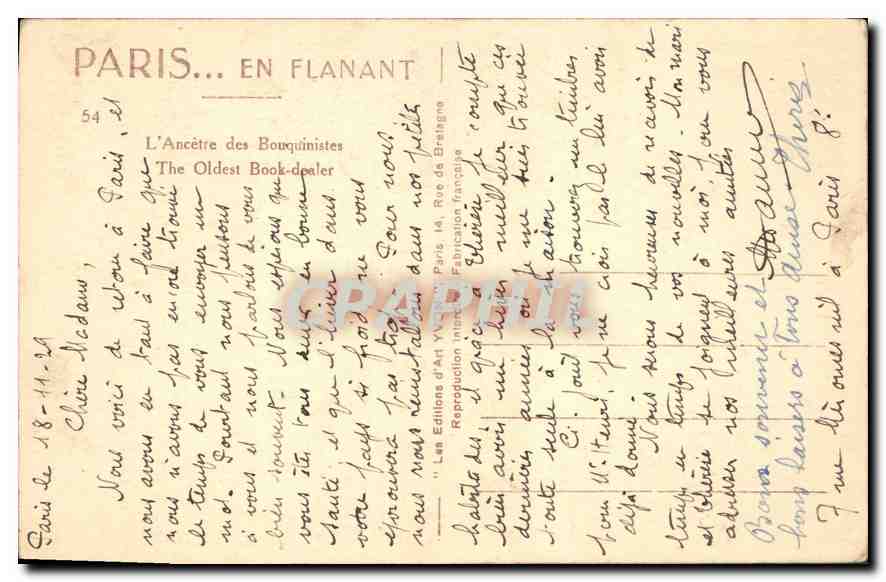 PARIS... EN FLANANT
54
L'Ancêtre des Bouquinistes
The Oldest Book-dealer
"Les Editions d'Art YVON" Paris 14, Rue de Bretagne
Reproduction Interdite Fabrication française
CPAPHIL
Paris le 18-11-29
Chère Madame,
Nous voici de retour à Paris, et
nous avons eu tant à faire que
nous n'avons pas encore trouvé
le temps de vous envoyer un
mot. Pourtant nous pensons
à vous et nous parlons de vous
bien souvent. Nous espérons que
vous êtes tous deux en bonne
santé et que l'hiver dans
votre pays si froid ne vous
éprouvera pas trop. Pour nous,
nous nous réinstallons dans nos petites
habitudes et grâce à Thérèse je compte
bien avoir un hiver meilleur que ces
dernières années où je me suis trouvée
toute seule à la maison.
Ci-joint vous trouverez un timbre
pour Mr Henri, je ne crois pas le lui avoir
déjà donné.
Nous serons heureuses de savoir de
temps en temps de vos nouvelles. Mon mari
et Thérèse se joignent à moi pour vous
adresser nos meilleures amitiés
Bons souvenirs et
bons baisers à tous deux Thérèse
7 rue à Paris 8e